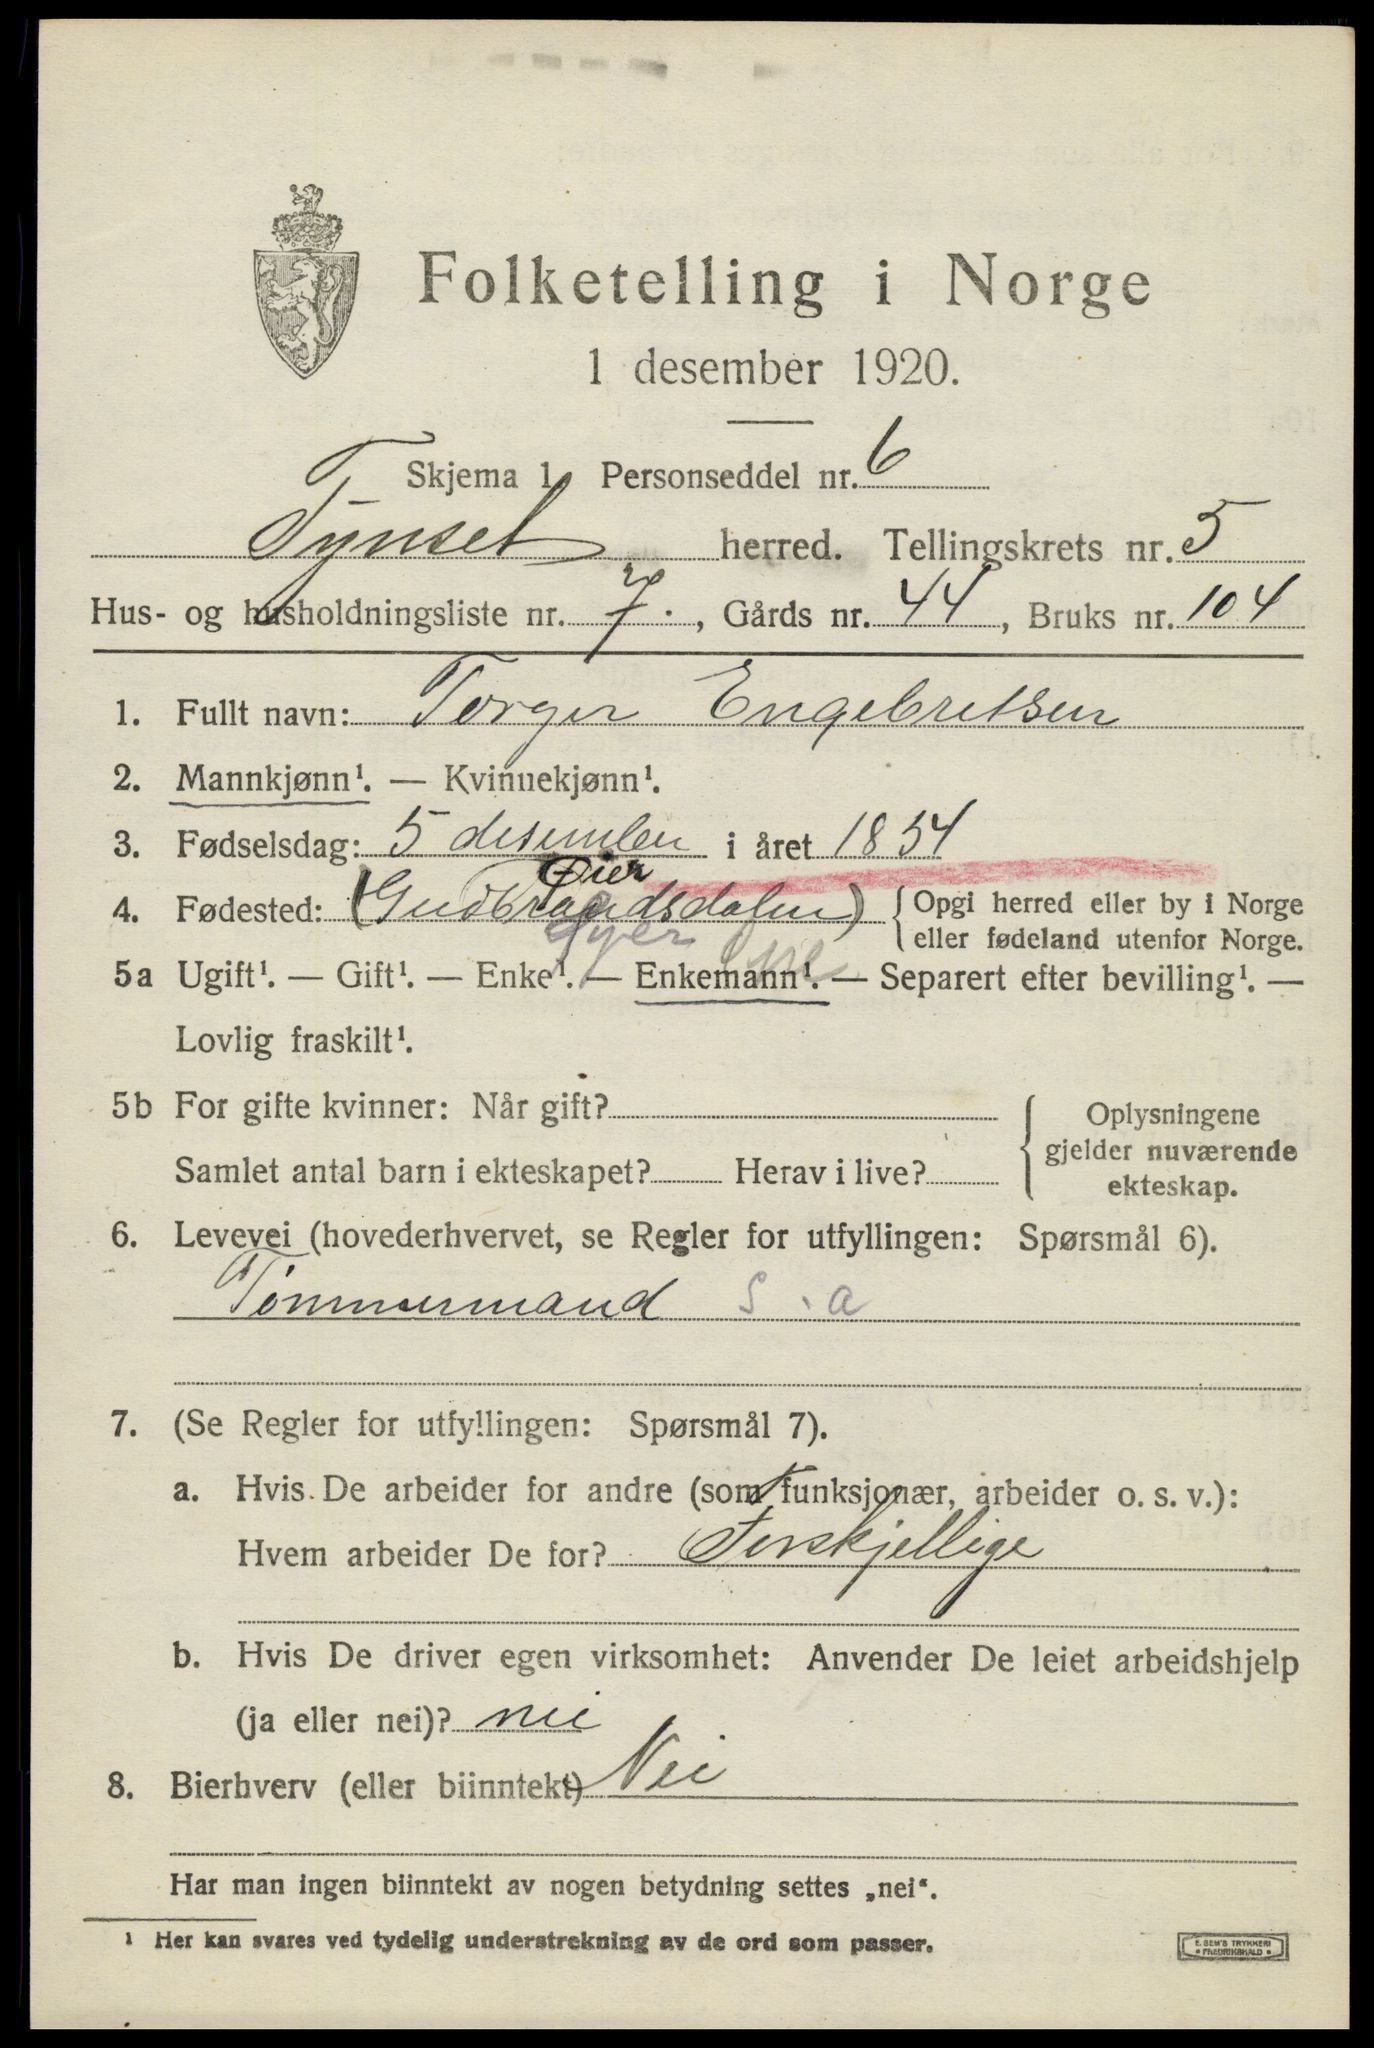 Folketelling i Norge
1 desember 1920.
Skjema 1 Personseddel nr. 6
Tynset herred. Tellingskrets nr. 5
Hus- og husholdningsliste nr. 7., Gårds nr. 44, Bruks nr. 104
1. Fullt navn: Torger Engebretsen
2. Mannkjønn¹. — Kvinnekjønn¹.
3. Fødselsdag: 5 desember i året 1854
Øier
4. Fødested: (Gudbrandsdalen) { Opgi herred eller by i Norge
eller fødeland utenfor Norge.
Øyer
5a Ugift¹. — Gift¹. — Enke¹. — Enkemann¹. — Separert efter bevilling¹. —
Lovlig fraskilt¹.
5b For gifte kvinner: Når gift?
Samlet antal barn i ekteskapet? Herav i live?
{ Oplysningene
gjelder nuværende
ekteskap.
6. Levevei (hovederhvervet, se Regler for utfyllingen: Spørsmål 6).
Tømmermand S. a
7. (Se Regler for utfyllingen: Spørsmål 7).
a. Hvis De arbeider for andre (som funksjonær, arbeider o. s. v.):
Hvem arbeider De for? Forskjellige
b. Hvis De driver egen virksomhet: Anvender De leiet arbeidshjelp
(ja eller nei)? nei
8. Bierhverv (eller biinntekt) Nei
Har man ingen biinntekt av nogen betydning settes „nei“.
¹ Her kan svares ved tydelig understrekning av de ord som passer.
E. SEM'S TRYKKERI
• FREDRIKSHALD •